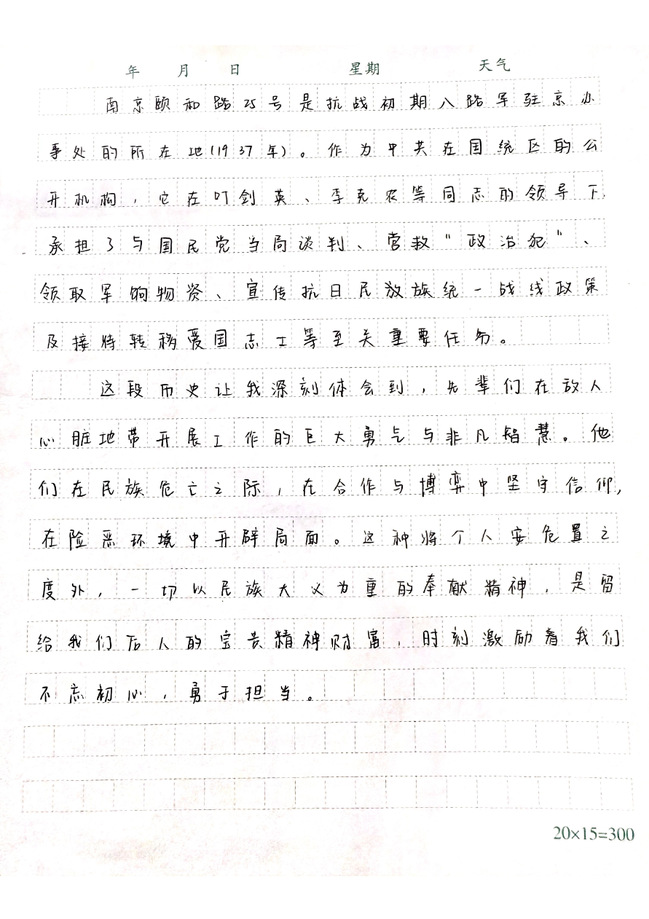 年 月 日 星期 天气
南京颐和路25号是抗战初期八路军驻京办
事处的所在地(1937年)。作为中共在国统区的公
开机构，它在叶剑英、李克农等同志的领导下，
承担了与国民党当局谈判、营救“政治犯”、
领取军饷物资、宣传抗日民放族统一战线政策
及接将转移爱国志士等至关重要任务。
这段历史让我深刻体会到，先辈们在敌人
心脏地带开展工作的巨大勇气与非凡智慧。他
们在民族危亡之际，在合作与博弈中坚守信仰，
在险恶环境中开辟局面。这种将个人安危置之
度外，一切以民族大义为重的奉献精神，是留
给我们后人的宝贵精神财富，时刻激励着我们
不忘初心，勇于担当。
20×15=300